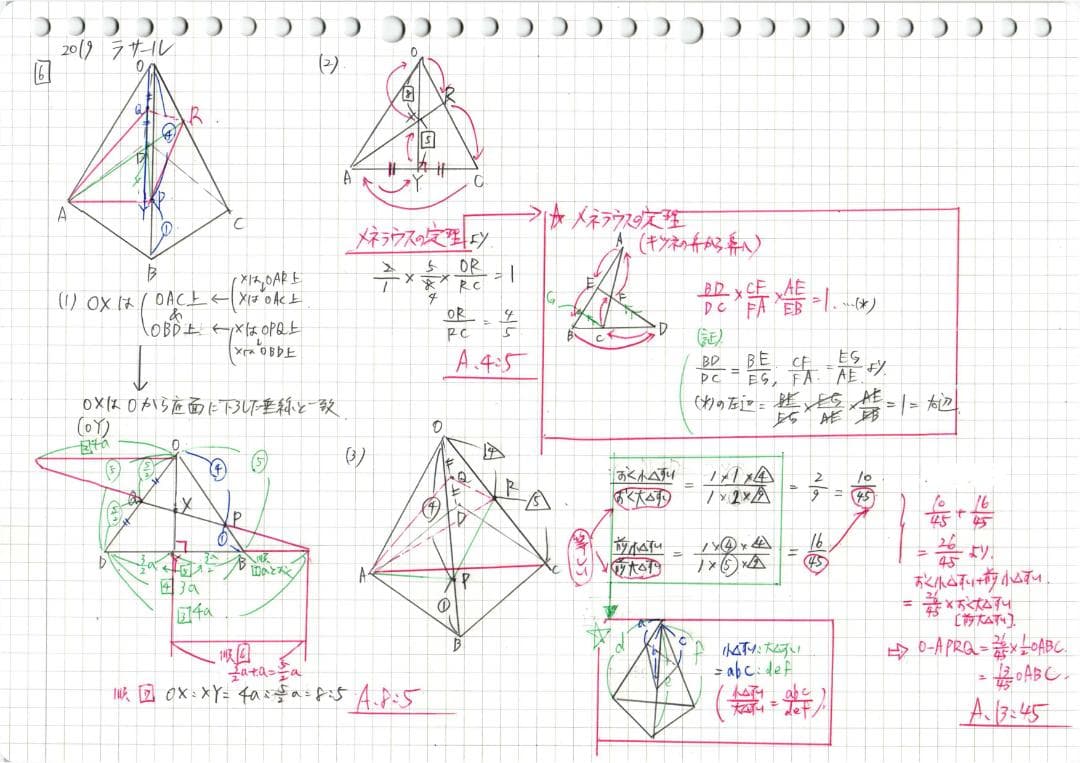 2019 ラサール
6
O
Q
R
④
D
P
A
①
C
B
(1) OXは
OAC上 ← Xは OAR上
↓
Xは OAC上
&
OBD上 ← Xは OPQ上
↓
Xは OBD上
OXは Oから底面に下ろした垂線と一致
(OY)
2 4a
O
⑤
④
⑤
Q
X
P
①
D
B
3a
3 4a
順 6
3/2a+a=5/2a
順 7 OX:XY= 4a:5/2a=8:5
A. 8:5
(2)
O
8
R
X
5
A
Y
C
メネラウスの定理より
2/1 × 5/8 × OR/RC = 1
4
OR/RC = 4/5
A. 4:5
☆ メネラウスの定理
(キツネの鼻から鼻へ)
A
E
G
F
B
C
D
BD/DC × CF/FA × AE/EB = 1. …(*)
(証)
BD/DC = BE/EG, CF/FA = EG/AE より
(*)の左辺 = BE/EG × EG/AE × AE/EB = 1 = 右辺
(3)
O
4
Q
R
④
5
D
A
C
P
①
B
等しい
おく小△すい/おく大△すい = 1×1×4/1×2×9 = 2/9 = 10/45
前小△すい/前大△すい = 1×④×4/1×⑤×9 = 16/45
10/45 + 16/45
= 26/45 より.
おく小△すい+前小△すい
= 26/45 × おく大△すい
[前大△すい].
⇒ O-APRQ = 26/45 × 1/2 OABC.
= 13/45 OABC.
A. 13:45
☆
a
d
b
c
f
e
小△すい:大△すい
= abc:def
(小△すい/大△すい = abc/def)